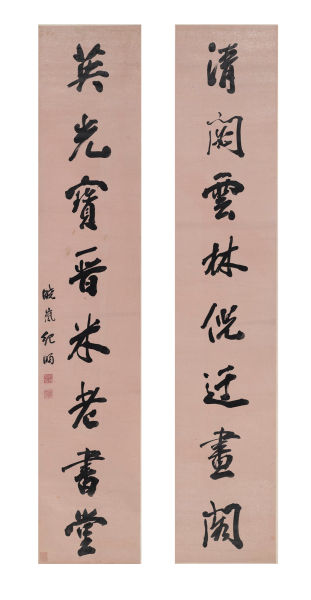 清閟雲林倪迂畫閣
英光寶晋米老書堂
曉嵐紀昀